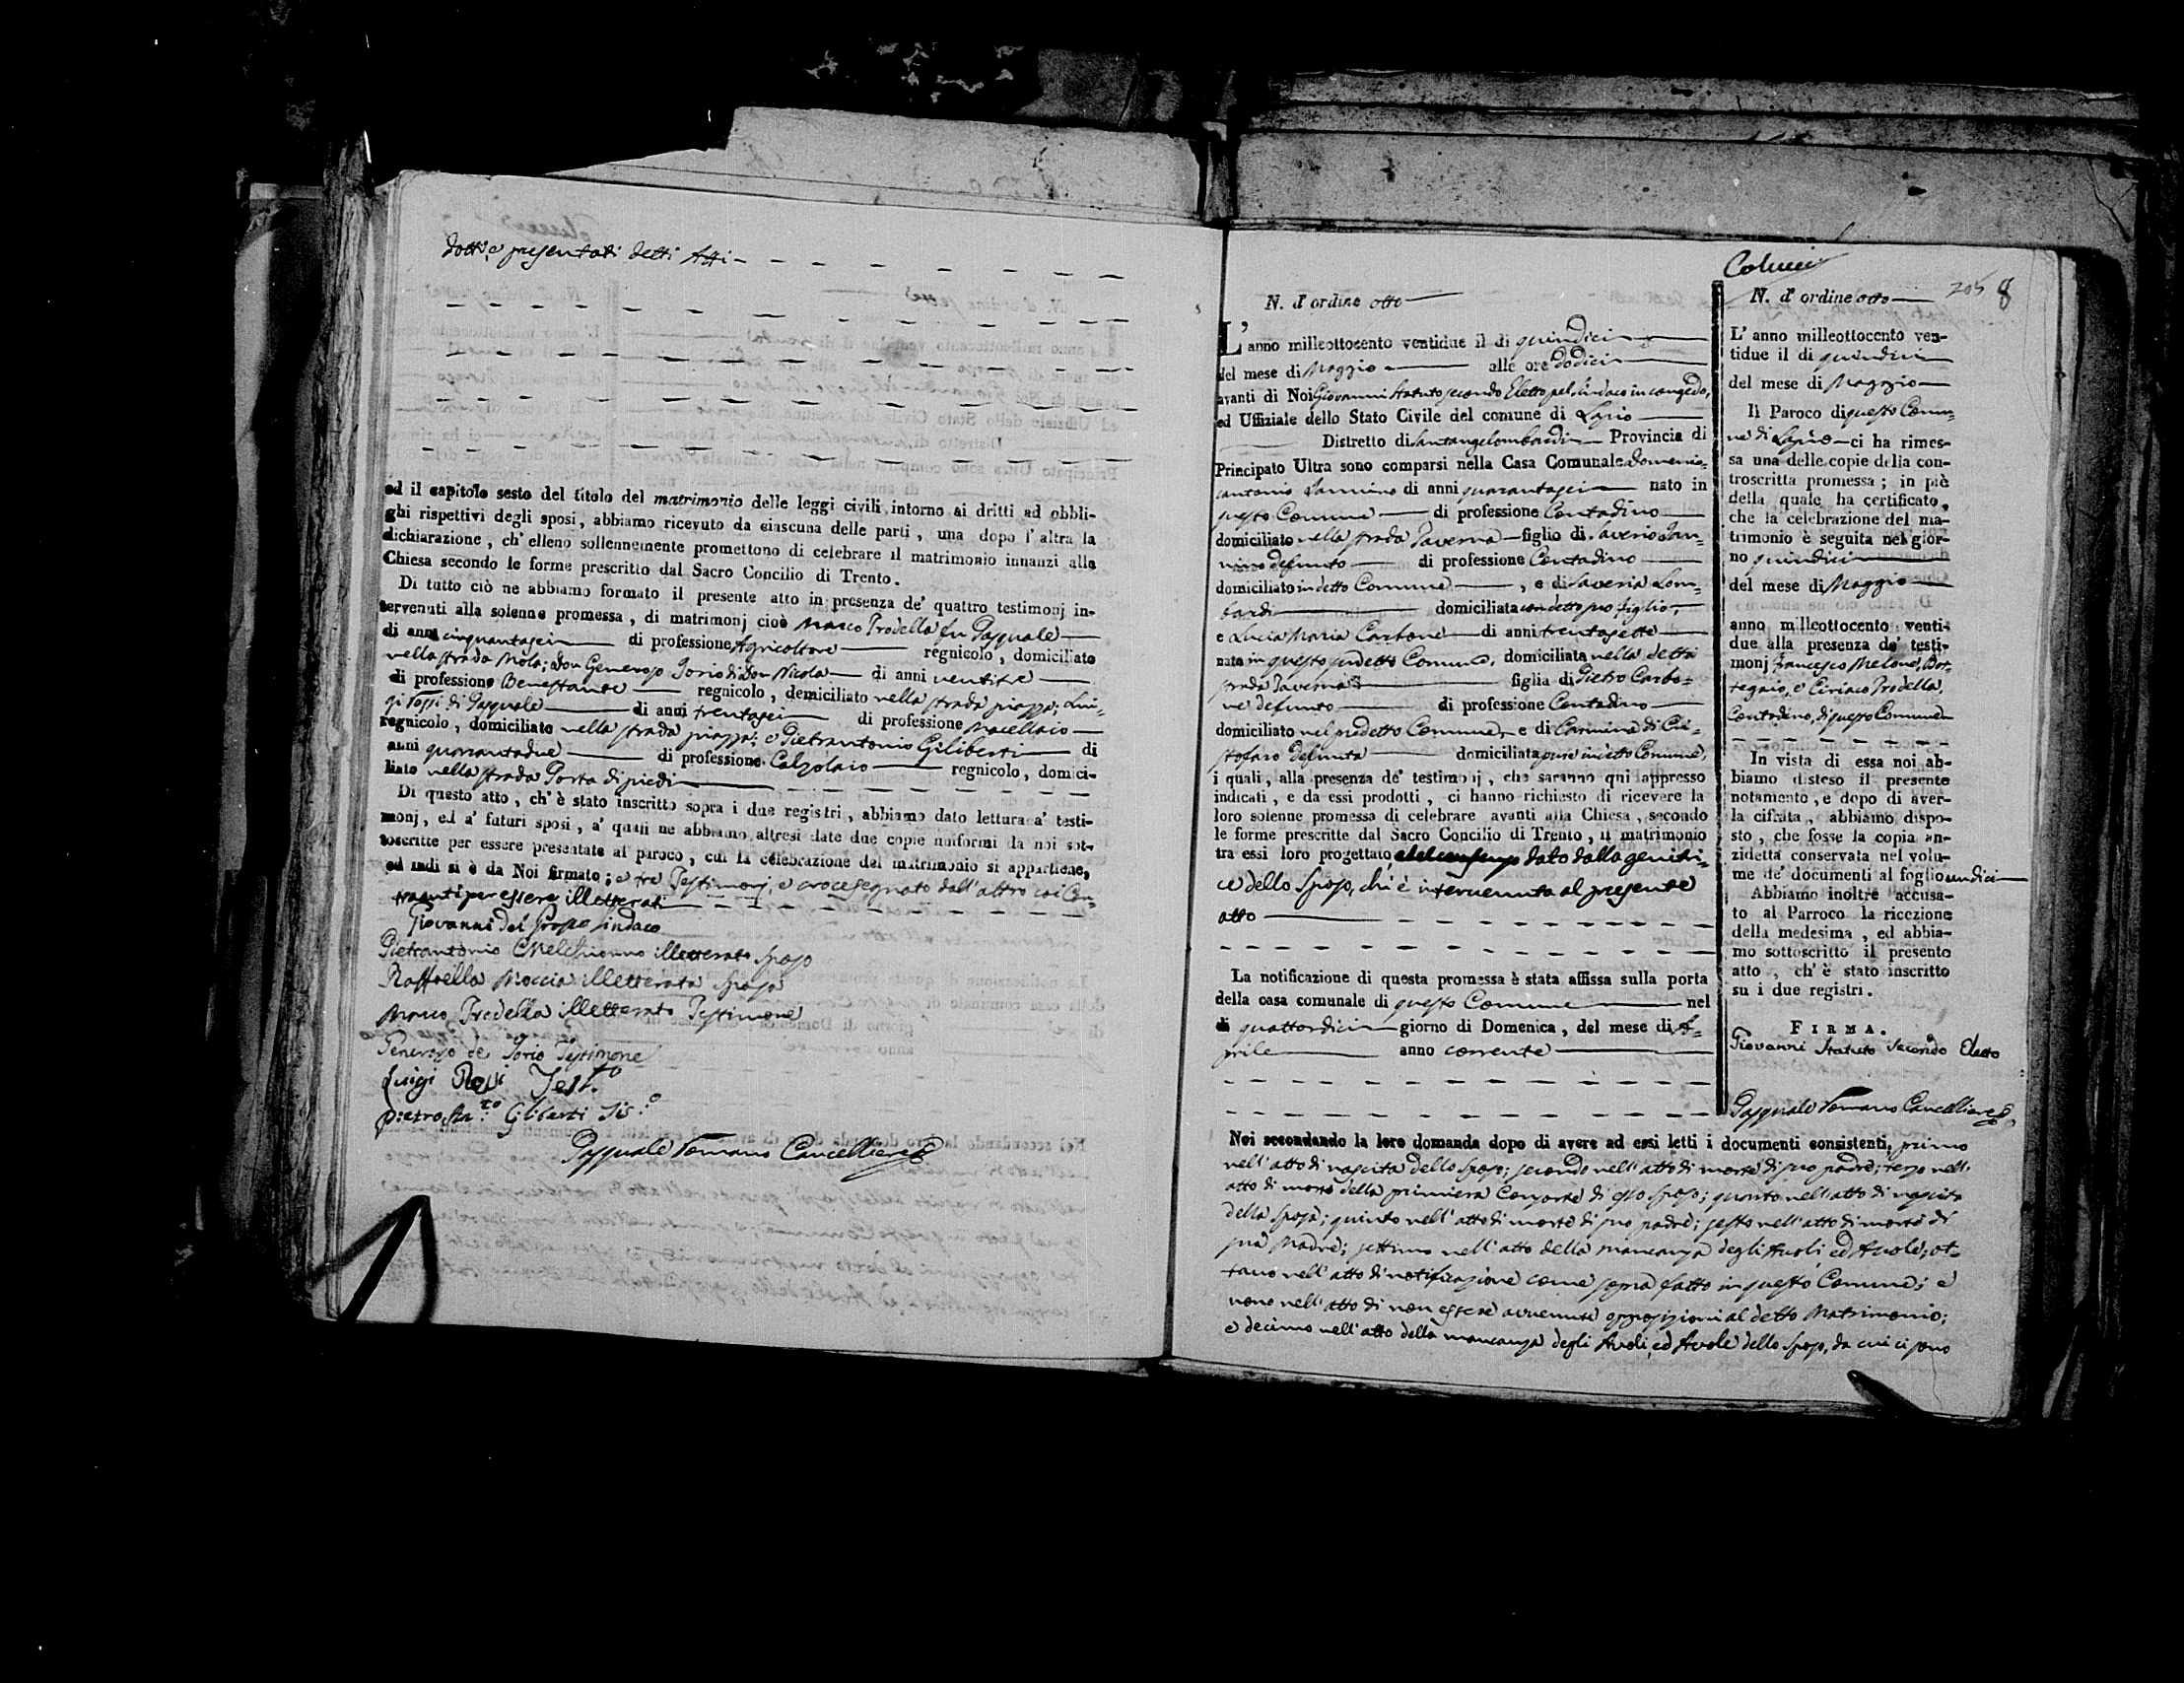 dotti, e presentati detti Atti
ed il capitolo sesto del titolo del matrimonio delle leggi civili intorno ai dritti ad obbli-
ghi rispettivi degli sposi, abbiamo ricevuto da ciascuna delle parti, una dopo l'altra la
dichiarazione, ch'elleno sollennemente promettono di celebrare il matrimonio innanzi alla
Chiesa secondo le forme prescritto dal Sacro Concilio di Trento.
Di tutto ciò ne abbiamo formato il presente atto in presenza de' quattro testimonj in-
tervenuti alla solenne promessa, di matrimonj cioè Marco Prodella fu Pasquale
di anni cinquantasei di professione Agricoltore regnicolo, domiciliato
nella strada Molo; Don Generoso Iorio di Don Nicola di anni ventitre
di professione Benestante regnicolo, domiciliato nella strada piazza; Lui-
gi Rossi di Pasquale di anni trentasei di professione Macellaio
regnicolo, domiciliato nella strada piazza; e Pietrantonio Giliberti di
anni quarantadue di professione Calzolaio regnicolo, domici-
liato nella strada Porta di piedi
Di questo atto, ch'è stato inscritto sopra i due registri, abbiamo dato lettura a' testi-
monj, ed a' futuri sposi, a' quali ne abbiamo altresì date due copie uniformi da noi sot-
toscritte per essere presentate al paroco, cui la celebrazione del matrimonio si appartiene,
ed indi si è da Noi firmato; e tre Testimonj, e crocesegnato dall'altro coi Con-
traenti per essere illetterati
Giovanni Sindaco
Pietrantonio Melchionno illetterato Sposo
Raffaella Moccia illetterata Sposa
Marco Prodella illetterato Testimone
Generoso de Iorio Testimone
Luigi Rossi Test.º
Pietro An.to Giliberti Tis.º
Pasquale Romano Cancelliere
Colucci
N. d'ordine otto
L'anno milleottocento ventidue il di quindici
del mese di Maggio alle ore dodici
avanti di Noi Giovanni Statuto secondo Eletto pel Sindaco in congedo,
ed Uffiziale dello Stato Civile del comune di Lapio
Distretto di Santangelombardi Provincia di
Principato Ultra sono comparsi nella Casa Comunale Domenic=
cantonio Iannino di anni quarantasei nato in
questo Comune di professione Contadino
domiciliato nella strada Taverna figlio di Saverio Ian=
nino defunto di professione Contadino
domiciliato in detto Comune, e di Saveria Lom=
bardi domiciliata con detto suo figlio,
e Lucia Maria Carbone di anni trentasette
nata in questo sudetto Comune, domiciliata nella detta
strada Taverna figlia di Pietro Carbo=
ne defunto di professione Contadino
domiciliato nel predetto Comune, e di Carmina di Cri=
stofaro defunta domiciliata pure in detto Comune,
i quali, alla presenza de' testimonj, che saranno qui appresso
indicati, e da essi prodotti, ci hanno richiesto di ricevere la
loro solenne promessa di celebrare avanti alla Chiesa, secondo
le forme prescritte dal Sacro Concilio di Trento, il matrimonio
tra essi loro progettato, e del consenso dato dalla genitri=
ce dello Sposo, ch'è intervenuta al presente
atto
La notificazione di questa promessa è stata affissa sulla porta
della casa comunale di questo Comune nel
di quattordici giorno di Domenica, del mese di A=
prile anno corrente
205 8
N. d'ordine otto
L'anno milleottocento ven-
tidue il di quindici
del mese di Maggio
Il Paroco di questo Comu=
ne di Lapio ci ha rimes-
sa una delle copie della con-
troscritta promessa; in piè
della quale ha certificato,
che la celebrazione del ma-
trimonio è seguita nel gior-
no quindici
del mese di Maggio
anno milleottocento venti-
due alla presenza de' testi-
monj Francesco Melone, Bot=
tegaio, e Ciriaco Prodella,
Contadino, di questo Comune
In vista di essa noi ab-
biamo disteso il presente
notamento, e dopo di aver-
la cifrata, abbiamo dispo-
sto, che fosse la copia an-
zidetta conservata nel volu-
me de' documenti al foglio undici
Abbiamo inoltre accusa-
to al Parroco la ricezione
della medesima, ed abbia-
mo sottoscritto il presente
atto, ch'è stato inscritto
su i due registri.
FIRMA.
Giovanni Statuto Secondo Eletto
Pasquale Romano Cancelliere
Noi secondando la loro domanda dopo di avere ad essi letti i documenti consistenti, primo
nell'atto di nascita dello Sposo; secondo nell'atto di morte di suo padre; terzo nell'
atto di morte della primiera Consorte di esso Sposo; quarto nell'atto di nascita
della Sposa; quinto nell'atto di morte di suo padre; sesto nell'atto di morte di
sua Madre; settimo nell'atto della mancanza degli Avoli, ed Avole; ot=
tavo nell'atto di notificazione come sopra fatto in questo Comune; e
nono nell'atto di non essere avvenute opposizioni al detto Matrimonio;
e decimo nell'atto della mancanza degli Avoli, ed Avole dello Sposo, da cui ci sono